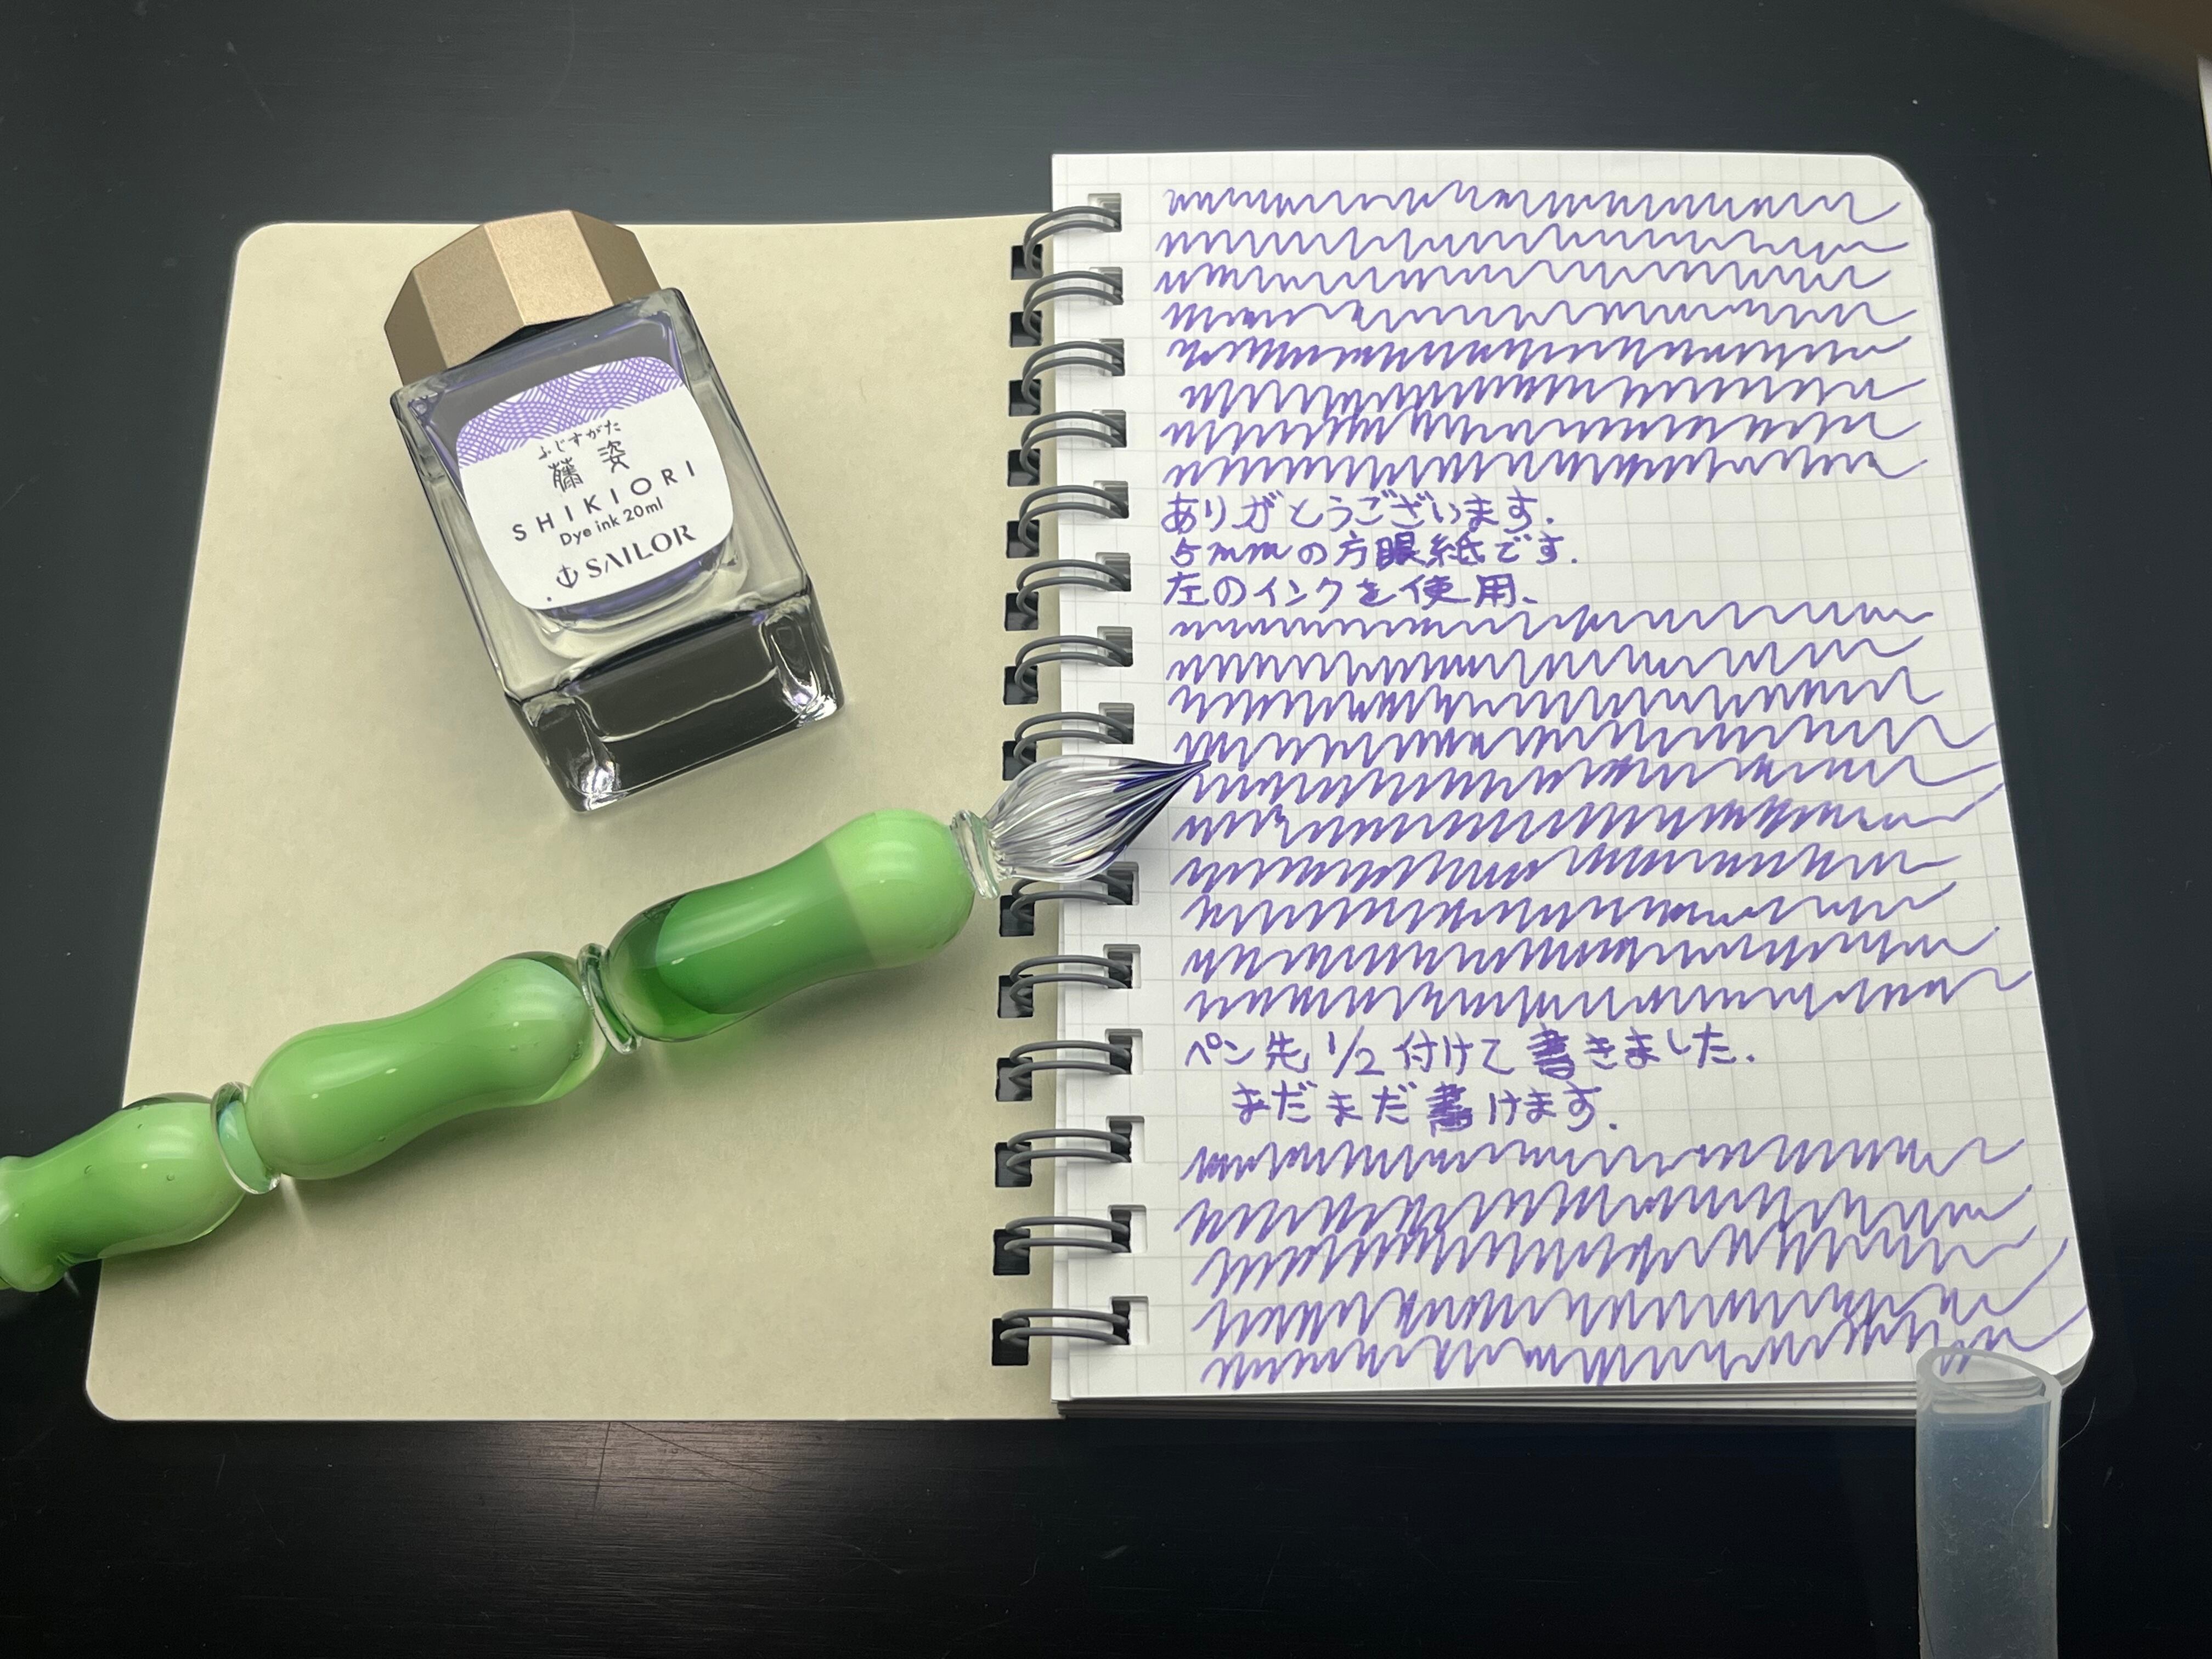 ふじすがた
藤姿
SHIKIORI
Dye ink 20ml
SAILOR
ありがとうございます.
5mmの方眼紙です.
左のインクを使用、
ペン先1/2付けて書きました.
まだまだ書けます.